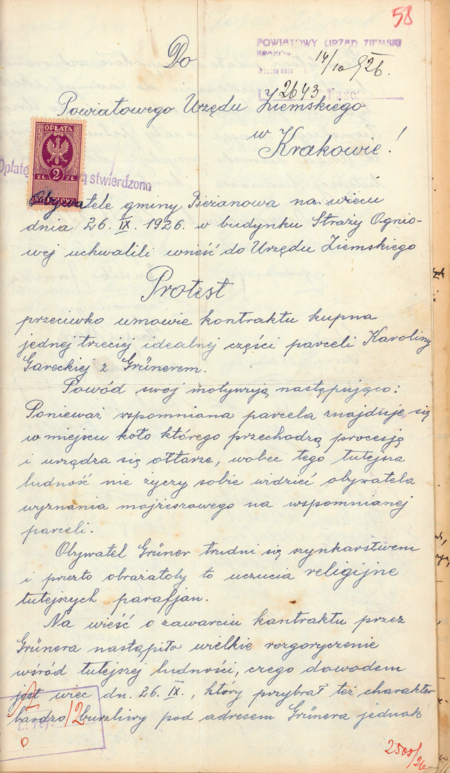 58
Do
POWIATOWY URZĄD ZIEMSKI
14/10 926
L. 2643
Powiatowego Urzędu Ziemskiego
w
Krakowie!
OPŁATA
2
stwierdzono
Obywatele gminy Bieżanowa na wiecu
dnia 26. IX. 1926. w budynku Straży Ognio-
wej uchwalili wnieść do Urzędu Ziemskiego
Protest
przeciwko umowie kontraktu kupna
jednej trzeciej idealnej części parceli Karoliny
Gareckiej z Grünerem.
Powód swój motywują następująco:
Ponieważ wspomniana parcela znajduje się
w miejscu koło którego przechodzą procesje
i urządza się ołtarze, wobec tego tutejsza
ludność nie życzy sobie widzieć obywatela
wyznania mojżeszowego na wspomnianej
parceli.
Obywatel Grüner trudni się szynkarstwem
i przeto obrażałoby to uczucia religijne
tutejszych parafjan.
Na wieść o zawarciu kontraktu przez
Grünera nastąpiło wielkie rozgoryczenie
wśród tutejszej ludności, czego dowodem
jest wiec dn. 26. IX., który przybrał też charakter
bardzo burzliwy pod adresem Grünera jednak
2500/26